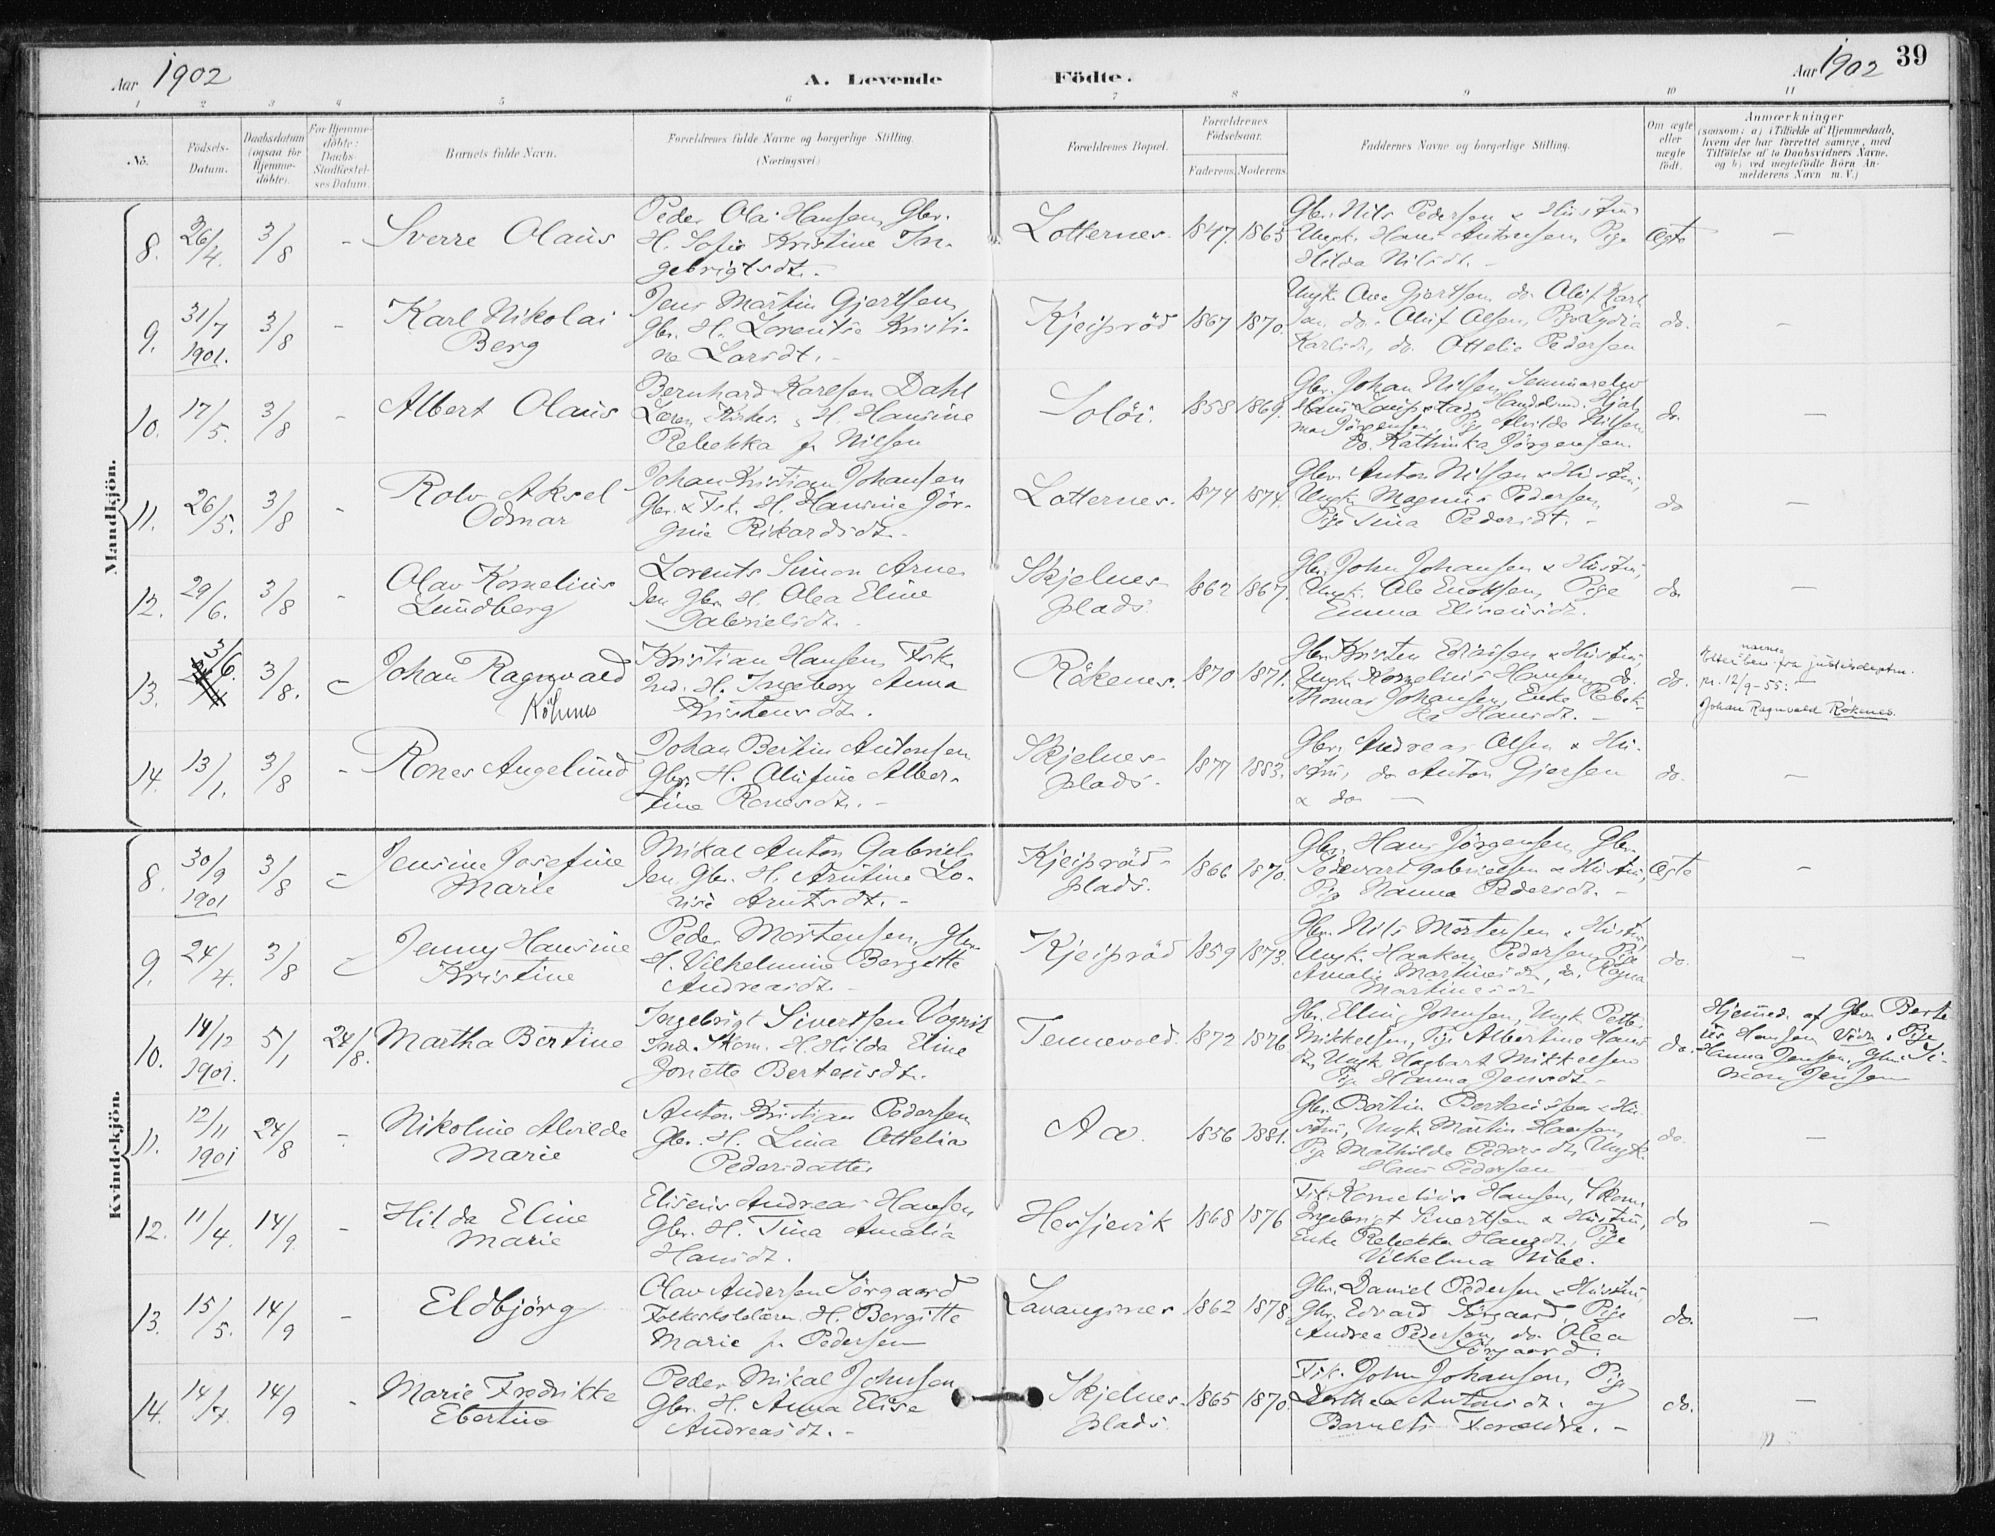 Aar 1902
A. Levende Födte.
Aar 1902 39
1 2 3 4 5 6 7 8 9 10 11
No.
Födsels-
Datum.
Daabsdatum
(ogsaa for
Hjemme-
döbte).
For Hjemme-
döbte:
Daabs-
Stadfæstel-
ses Datum.
Barnets fulde Navn.
Forældrenes fulde Navne og borgerlige Stilling.
(Næringsvei)
Forældrenes Bopæl.
Forældrenes
Födselsaar.
Faderens. Moderens.
Faddernes Navne og borgerlige Stilling.
Om ægte
eller
uægte
födt.
Anmærkninger
(saasom: a) i Tilfælde af Hjemmedaab,
hvem der har forrettet samme, med
Tilföielse af to Daabsvidners Navne,
og b) ved uægtefödte Börn An-
melderens Navn m. V.)
Mandkjön.
8. 26/4. 3/8 - Sverre Olaus
Peder Olai Hansen, Gbr.
H. Sofie Kristine In-
gebrigtsdt. -
Lotternes. 1847. 1865
Gbr. Nils Pedersen & Hustru,
Ungk. Hans Antonsen, Pige
Hilda Nilsdt. -
Ægte -
9. 31/7 1901. 3/8 - Karl Nikolai
Berg
Jens Martin Gjertsen
Gbr. H. Lorentse Kristi-
ne Larsdt. -
Kjeiprød 1867 1870.
Ungk. Ove Gjertsen, do. Oluf Karl
sen, do. Oluf Olsen, Pige Lydia
Karlsdt, do. Ottelie Pedersen
do. -
10. 17/5. 3/8 - Albert Olaus
Bernhard Karlsen Dahl
H. Hansine
Rebekka f. Nilsen
Soløi. 1858 1869.
Gbr. Johan Nilsen, Seminarelev
Hjal-
mar Jørgensen, Pige Alvilde Nilsen
do. Kathinka Jørgensen.
do. -
11. 26/5. 3/8 - Rolv Aksel
Odmar
Johan Kristian Johansen
Gbr. & Fsk. H. Hansine Jör-
gine Rikardsdt.
Lotternes. 1874 1874.
Gbr. Anton Nilsen & Hustru,
Ungk. Magnus Pedersen
Pige Sina Pedersdt. -
do -
12. 29/6. 3/8 - Olav Kornelius
Lundberg
Lorents Simon Arne-
sen Gbr. H. Olea Eline
Gabrielsdt. -
Skjelnes-
plads. 1862 1867.
Gbr. John Johansen & Hustru,
Ungk. Ole Enoksen, Pige
Emma Eliseusdt.
do. -
13. 3/6. 3/8. - Johan Ragnvald
Kristian Hansen Fsk.
Ind. H. Ingeborg Anna
Kristensdt.
Rökenes. 1870 1871.
Gbr. Kristen Edvardsen & Hustru,
Ungk. Kornelius Hansen, do.
Thomas Johansen, Enke Rebek-
ka Hansdt. -
do.
navne
fra justisdeptm.
m. 12/9-55: -
Johan Ragnvald Rökenes.
14. 13/1. 3/8 - Rones Angelund
Johan Bertin Antonsen
Gbr. H. Olufine Alber-
tine Ronesdt. -
Skjelnes-
plads. 1877 1883.
Gbr. Andreas Olsen & Hu-
stru, do Anton Gjersen
& do -
do. -
Kvindekjön.
8. 30/9 1901 3/8 - Jensine Josefine
Marie
Mikal Anton Gabriel-
sen Gbr. H. Arntine Lo-
vise Arntsdt. -
Kjeiprød-
plads. 1866 1870.
Gbr. Hans Jørgensen, Gbr.
Sedevart Gabrielsen & Hustru,
Pige Nanna Pedersdt. -
Ægte -
9. 24/4. 3/8 - Jenny Hansine
Kristine
Peder Mortensen, Gbr.
H. Vilhelmine Bergitte
Andreasdt. -
Kjeiprød 1859 1873.
Gbr. Nils Mortensen & Hustru
Ungk. Haakon Pedersen, Pige
Amalie Martinesdt., do. Ragna
Martinesdt
do. -
10. 14/12 1901. 5/1 24/8. Martha Bertine
Ingebrigt Sivertsen Vognik
Ind. Skom. H. Hilda Eline
Jonette Berteusdt.
Tennevold. 1872 1876
Gbr. Elling Johnsen, Ungk. Petter
Mikkelsen, Pige Albertine Hans
dt, Ungk. Hagbart Mikkelsen
Pige Hanna Jensdt. -
do.
Hjemmed. af Gbr. Berte
us Hansen Vidn. Pige
Hanna Jensen, Gbr. Si-
mon Jensen
11. 12/11 1901 24/8 - Nikoline Alvilde
Marie
Anton Kristian Pedersen
Gbr. H. Lina Ottelia
Pedersdatter
Aa. 1856 1881.
Gbr. Bertin Berteussen & Hu-
stru, Ungk. Martin Hansen,
Pige Mathilde Pedersdt, Ungk.
Hans Pedersen
do. -
12. 11/4. 14/9. - Hilda Eline
Marie
Eliseus Andreas Hansen
Gbr. H. Tina Amalia
Hansdt.
Hesjevik 1868 1876
Fsk. Kornelius Hansen, Skom.
Ingebrigt Sivertsen & Hustru,
Enke Rebekka Hansdt, Pige
Vilhelma Nibe.
do -
13. 15/5. 14/9 - Eldbjörg
Olav Andersen Sörgaard
Folkeskolelærer. H. Bergitte
Marie f. Pedersen
Lavangsnes 1862 1878
Gbr. Daniel Pedersen & Hustru,
Gbr. Edvard Sörgaard, Pige
Andrea Pedersen, do. Olea
Sörgaard.
do. -
14. 14/7. 14/9 - Marie Fredrikke
Ebertine
Peder Mikal Johnsen
Gbr. H. Anna Elise
Andreasdt. -
Skjelnes-
plads. 1865 1870
Fsk. John Johansen, Pige
Dorthea Antonsdt. og
Barnets Forældre. -
do. -
"